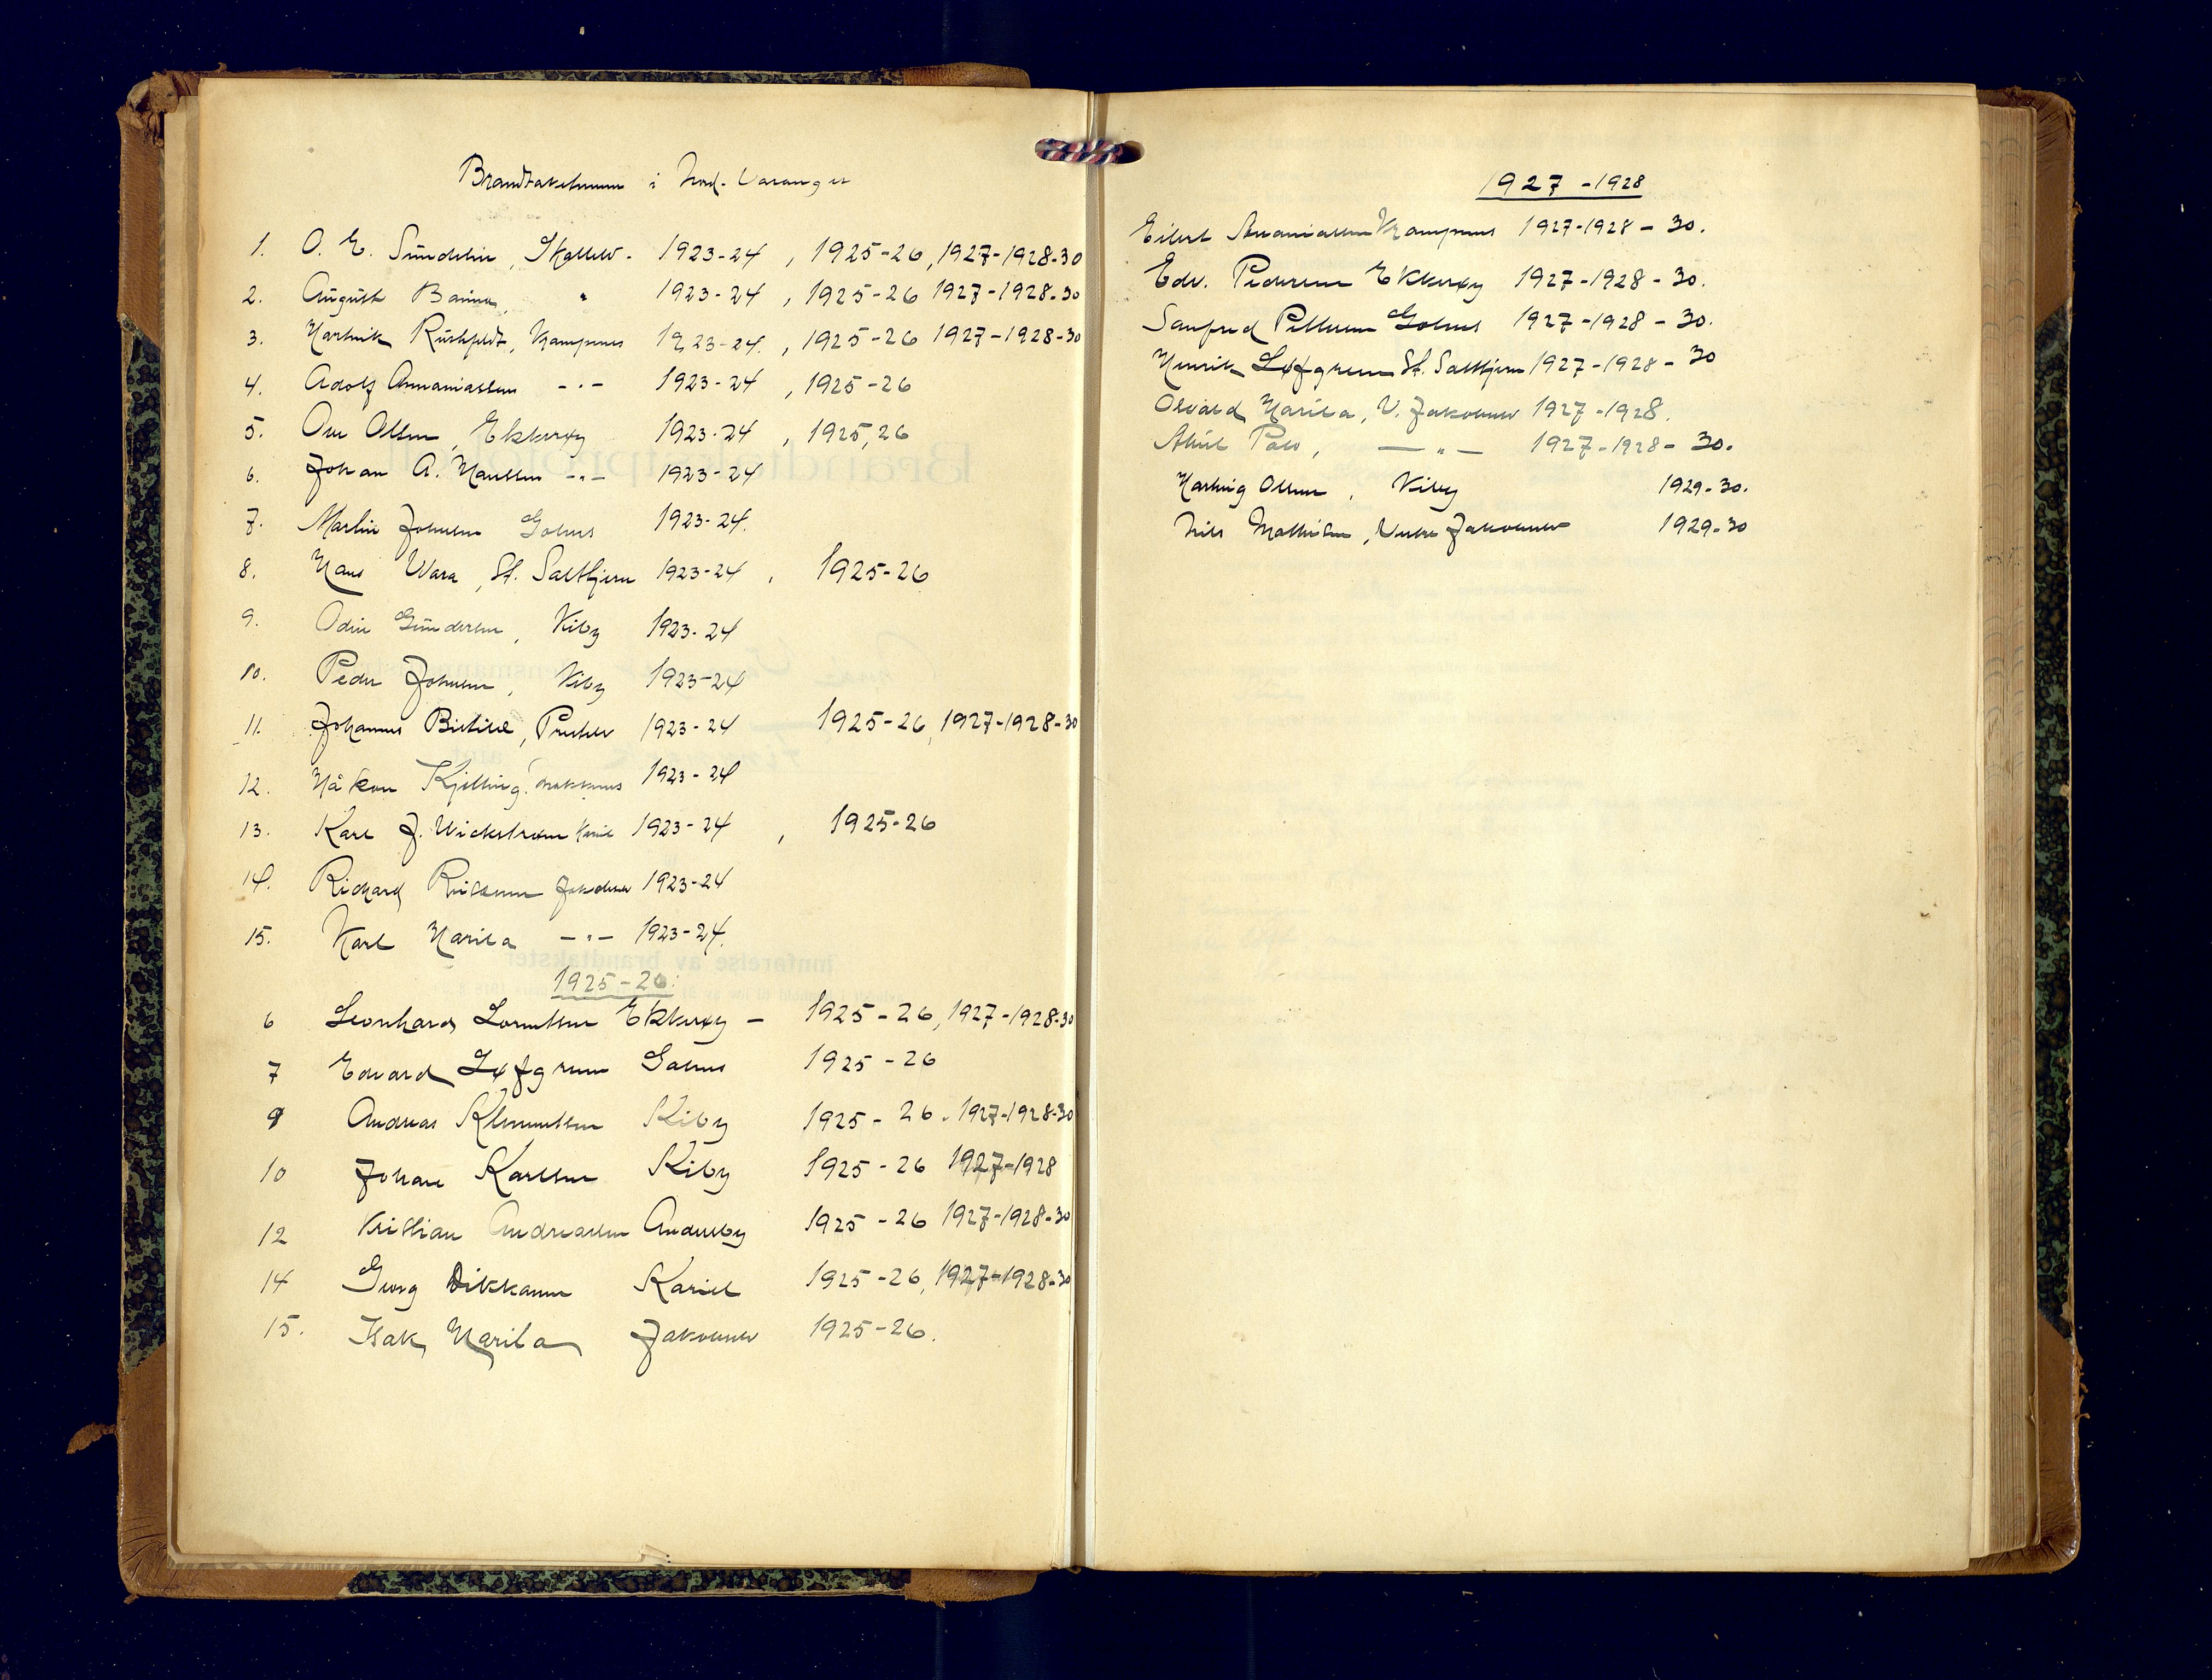 Brandtakstmenn i Nord-Varanger
1. O. E. Sundelin, Skallelv - 1923-24, 1925-26, 1927-1928-30
2. August Banna, " 1923-24, 1925-26 1927-1928-30
3. Hartvik Rushfeldt, Krampenes 1923-24., 1925-26 1927-1928-30
4. Adolf Annaniassen -"- 1923-24, 1925-26
5. Ove Olsen, Ekkerøy 1923-24, 1925,26
6. Johan A. -"- 1923-24
7. Martin Johnsen Golnes 1923-24.
8. Hans Wara, St. Salttjern 1923-24, 1925-26
9. Odin Gundersen, Kiby 1923-24
10. Peder Johnsen, Kiby 1923-24
11. Johannes Bietilæ, Prestelv 1923-24 1925-26, 1927-1928-30
12. Håkon Kjeldning. 1923-24
13. Karl J. Wickstrøm Kariel 1923-24, 1925-26
14. Richard Jakobselv 1923-24
15. Karl Harila -"- 1923-24.
1925-26:
6 Leonhard Lorentsen Ekkerøy - 1925-26, 1927-1928-30
7 Edvard Løfgren Golnes 1925-26
9 Andreas Klemmetsen Kiby 1925-26. 1927-1928-30
10 Johan Karlsen Kiby 1925-26 1927-1928
12 Kristian Andreassen Andersby 1925-26 1927-1928-30
14 Georg Dikkanen Kariel 1925-26, 1927-1928-30
15. Isak Harila Jakobselv 1925-26.
1927-1928
Eilert Ananiassen Krampenes 1927-1928-30.
Edv. Pedersen Ekkerøy 1927-1928-30.
Sanfred Pettersen Golnes 1927-1928-30.
Henrik Løfgren St. Salttjern 1927-1928-30
Osvald Harila, V. Jakobselv 1927-1928.
Palo, -"- 1927-1928-30.
Hartvig Olsen, Kiby 1929-30.
Nils Mathisen, Vestre Jakobselv 1929-30